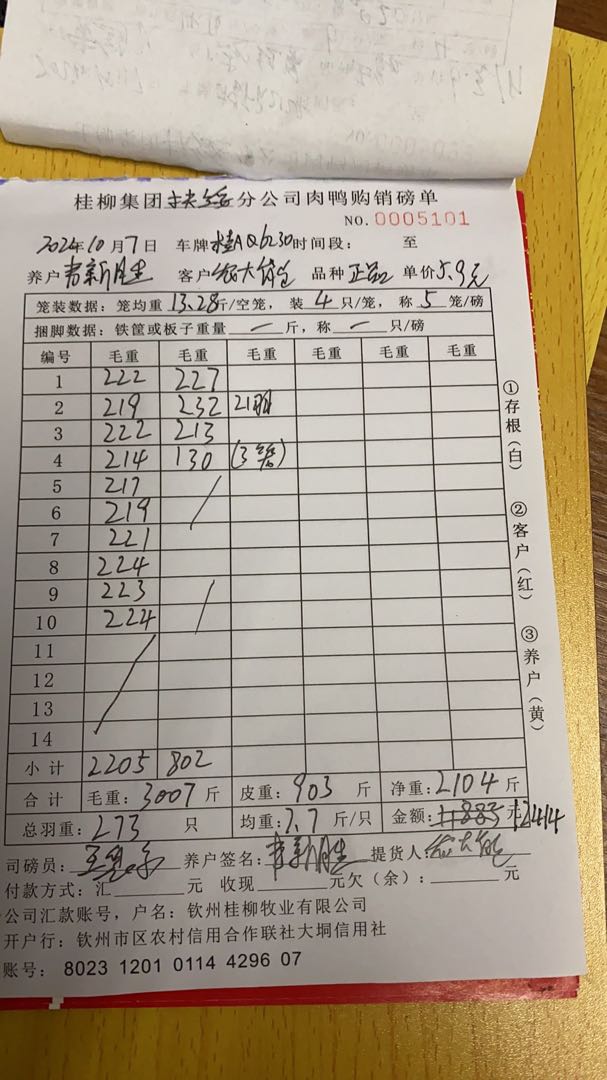 桂柳集团扶绥分公司肉鸭购销磅单
NO.0005101
2024年10月7日 车牌桂AQ6230时间段: 至
养户 韦新胜 客户 品种 正品 单价5.9元
笼装数据:笼均重13.28斤/空笼,装4只/笼,称5笼/磅
捆脚数据:铁筐或板子重量一斤,称一只/磅
编号 毛重 毛重 毛重 毛重 毛重 毛重
1 222 227
2 219 232
3 222 213
4 214 130 (3笼)
5 217
6 219
7 221
8 224
9 223
10 224
11
12
13
14
小计 2205 802
合计 毛重:3007斤 皮重:903斤 净重:2104斤
总羽重:273只 均重:7.7斤/只 金额:11883元 12414
司磅员: 养户签名:韦新胜 提货人:
付款方式:汇 元 收现 元欠(余): 元
公司汇款账号,户名:钦州桂柳牧业有限公司
开户行:钦州市区农村信用合作联社大垌信用社
账号:8023 1201 0114 4296 07
①存根(白)
②客户(红)
③养户(黄)